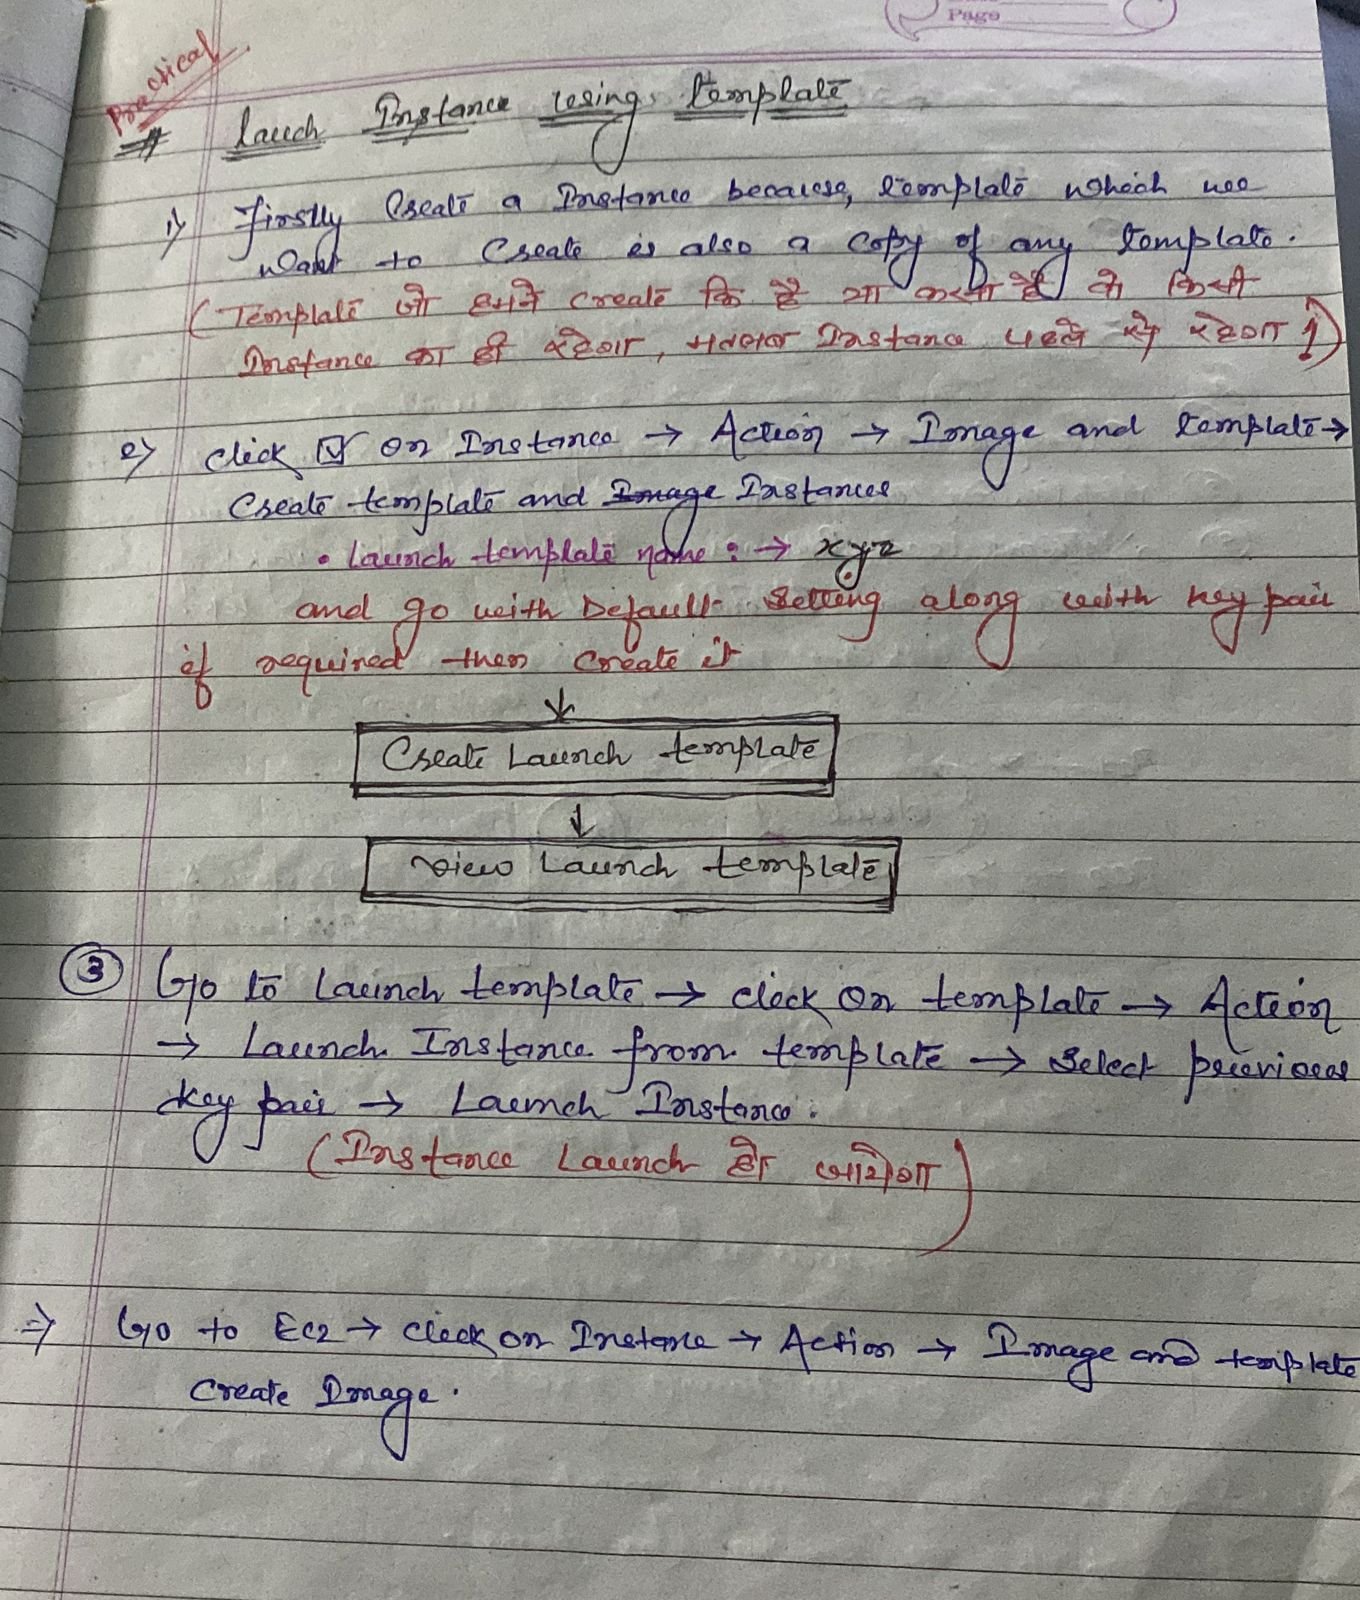 Page
Practical
# Lauch Instance using template
1) Firstly Create a Instance because, template which we
want to create is also a copy of any template.
(Template जो हमने create कि है या करना है वो किसी
Instance का ही रहेगा, मतलब Instance पहले से रहेगा।)
2) click ☑ on Instance → Action → Image and template →
Create template and Image Instances
• Launch template name : → xyz
and go with Default setting along with key pair
if required then create it
↓
Create Launch template
↓
view Launch template
③ Go to Launch template → click on template → Action
→ Launch Instance from template → select previous
key pair → Launch Instance.
(Instance Launch हो जायेगा)
⇒ Go to Ec2 → click on Instance → Action → Image and template
create Image.